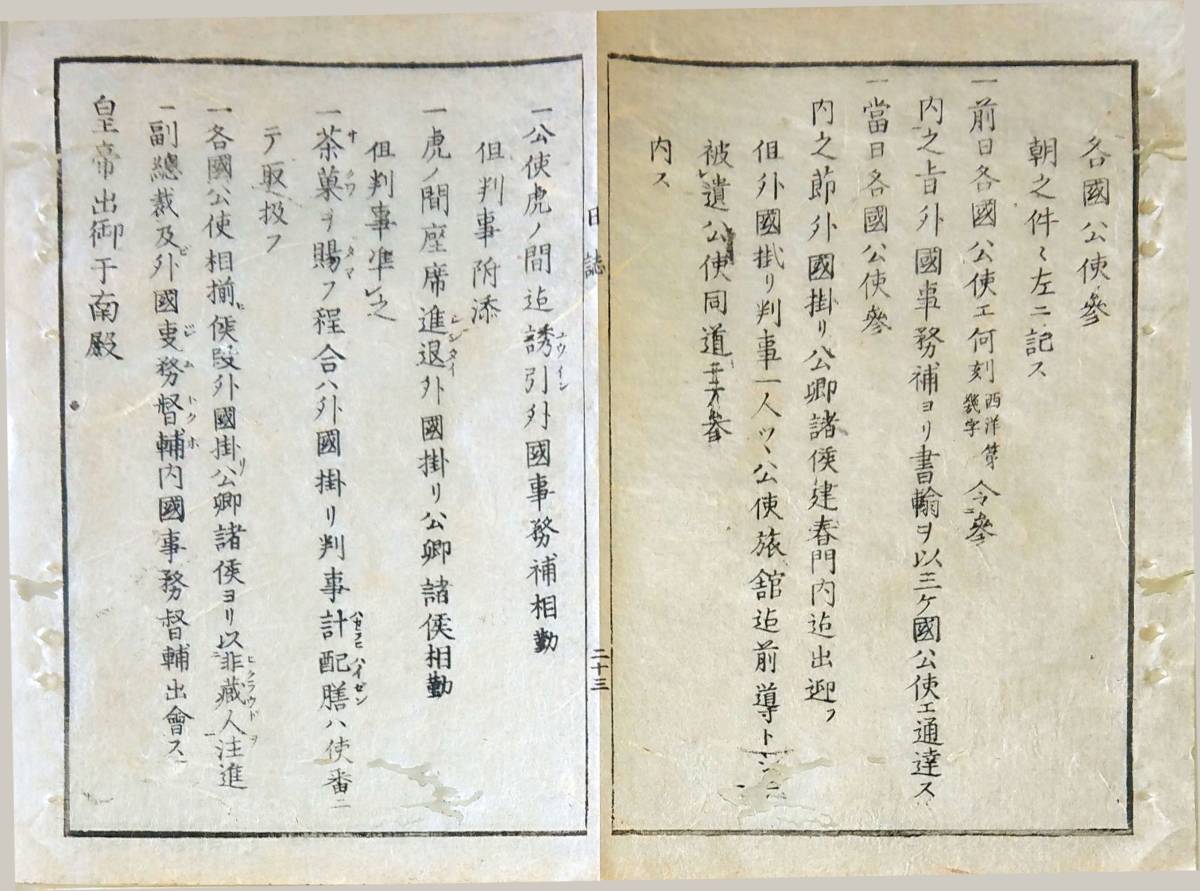 各國公使參
朝之件々左ニ記ス
一前日各國公使エ何刻西洋第幾字令參
内之旨外國事務補ヨリ書翰ヲ以三ケ國公使エ通達ス
一當日各國公使參
内之節外國掛リ公卿諸侯建春門内迠出迎フ
但外國掛リ判事一人ツヽ公使旅舘迠前導トシテ
被遣公使同道ニテ參
内ス
日誌
二十三
一公使虎ノ間迠誘引外國事務補相勤
ユウイン
但判事附添
一虎ノ間座席進退外國掛リ公卿諸侯相勤
シンタイ
但判事準之
一茶菓ヲ賜フ程合ハ外國掛リ判事計配膳ハ使番ニ
サクワ タマ ハイゼン
テ取扱フ
一各國公使相揃候段外國掛リ公卿諸侯ヨリ以非蔵人注進
ヒクラウドヲ
一副總裁及外國事務督輔内國事務督輔出會ス
ビ ジム トクホ
皇帝出御于南殿